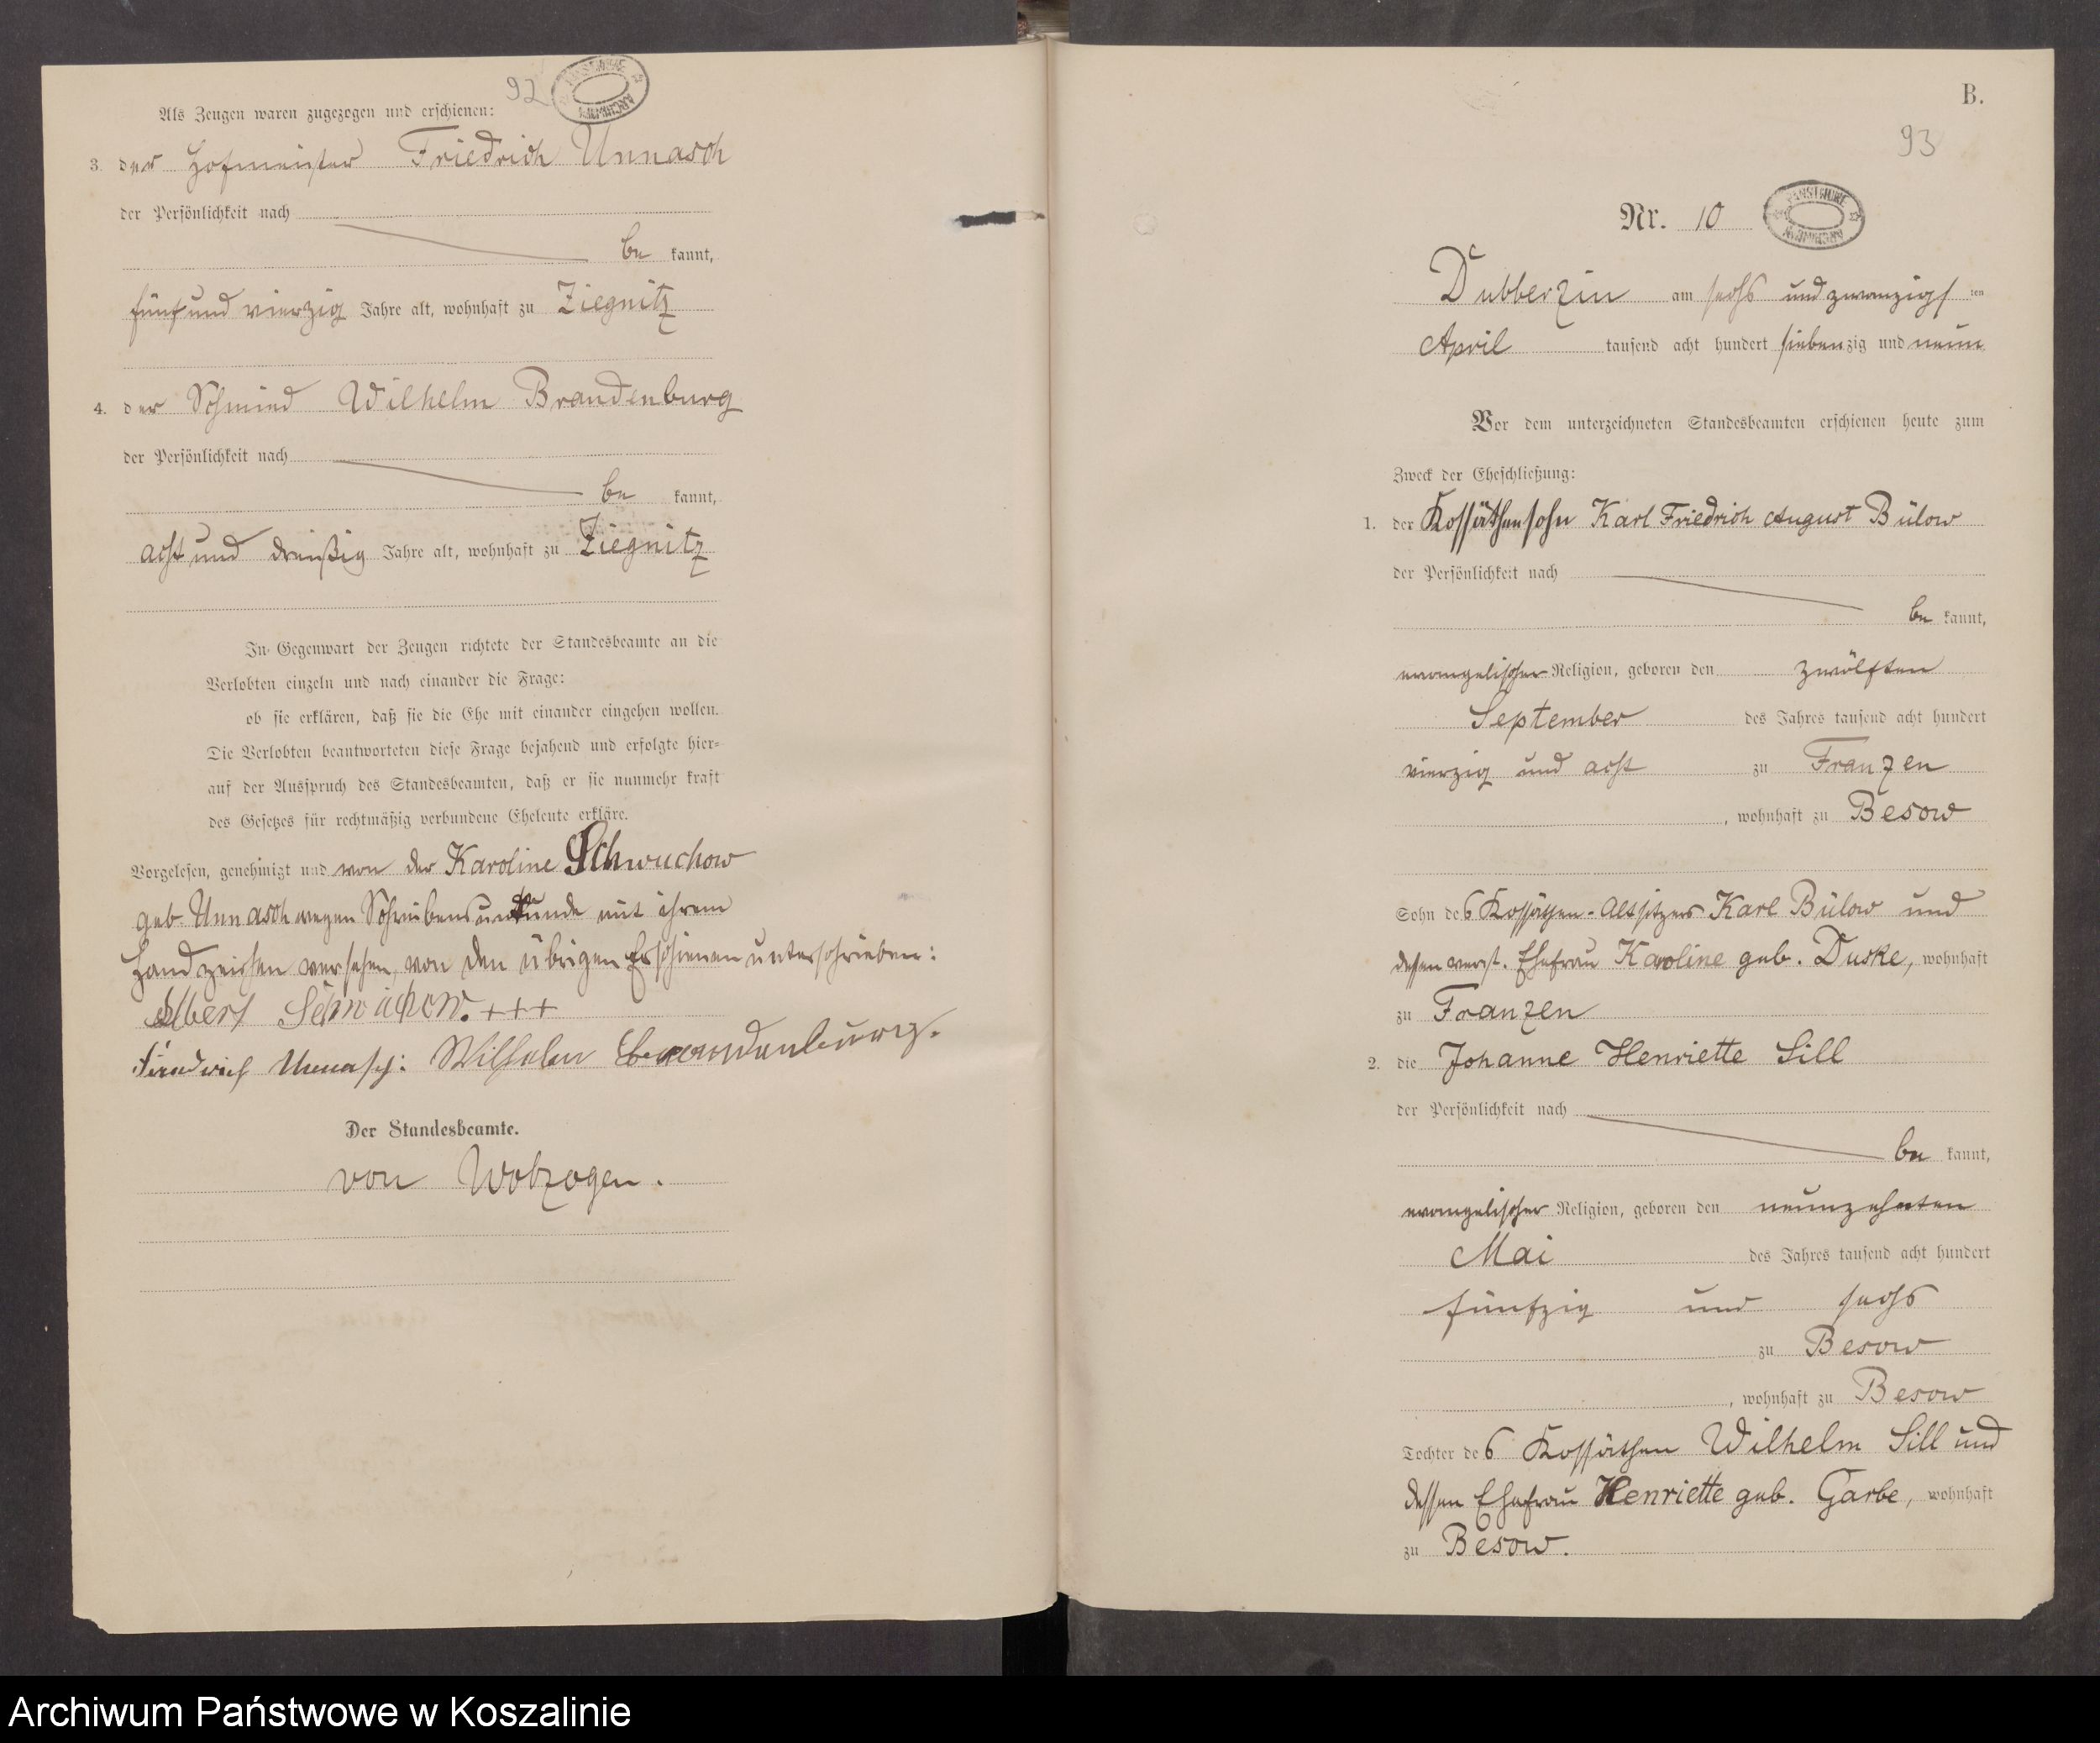 92
Als Zeugen waren zugezogen und erschienen:
3. der Hofmeister Friedrich Unnasch
der Persönlichkeit nach
be kannt,
fünf und vierzig Jahre alt, wohnhaft zu Ziegnitz
4. der Schmied Wilhelm Brandenburg
der Persönlichkeit nach
be kannt,
acht und dreißig Jahre alt, wohnhaft zu Ziegnitz
In Gegenwart der Zeugen richtete der Standesbeamte an die
Verlobten einzeln und nach einander die Frage:
ob sie erklären, daß sie die Ehe mit einander eingehen wollen.
Die Verlobten beantworteten diese Frage bejahend und erfolgte hier-
auf der Ausspruch des Standesbeamten, daß er sie nunmehr kraft
des Gesetzes für rechtmäßig verbundene Eheleute erkläre.
Vorgelesen, genehmigt und von der Karoline Schwuchow
geb. Unnasch wegen Schreibensunkunde mit ihrem
Handzeichen versehen, von den übrigen Erschienen unterschrieben:
Albert Schwuchow. +++
Friedrich Unnasch: Wilhelm Brandenburg.
Der Standesbeamte.
von Wolzogen.
B.
93
PAŃSTWOWE ARCHIWUM
Nr. 10
Dubberzin am sechs und zwanzigs ten
April tausend acht hundert siebenzig und neun
Vor dem unterzeichneten Standesbeamten erschienen heute zum
Zweck der Eheschließung:
1. der Kossäthensohn Karl Friedrich August Bülow
der Persönlichkeit nach
be kannt,
evangelischer Religion, geboren den zwölften
September des Jahres tausend acht hundert
vierzig und acht zu Franzen
, wohnhaft zu Besow
Sohn des Kossäthen-Altsitzers Karl Bülow und
dessen verst. Ehefrau Karoline geb. Duske, wohnhaft
zu Franzen
2. die Johanne Henriette Sill
der Persönlichkeit nach
be kannt,
evangelischer Religion, geboren den neunzehnten
Mai des Jahres tausend acht hundert
fünfzig und sechs
zu Besow
, wohnhaft zu Besow
Tochter des Kossäthen Wilhelm Sill und
dessen Ehefrau Henriette geb. Garbe, wohnhaft
zu Besow.
Archiwum Państwowe w Koszalinie